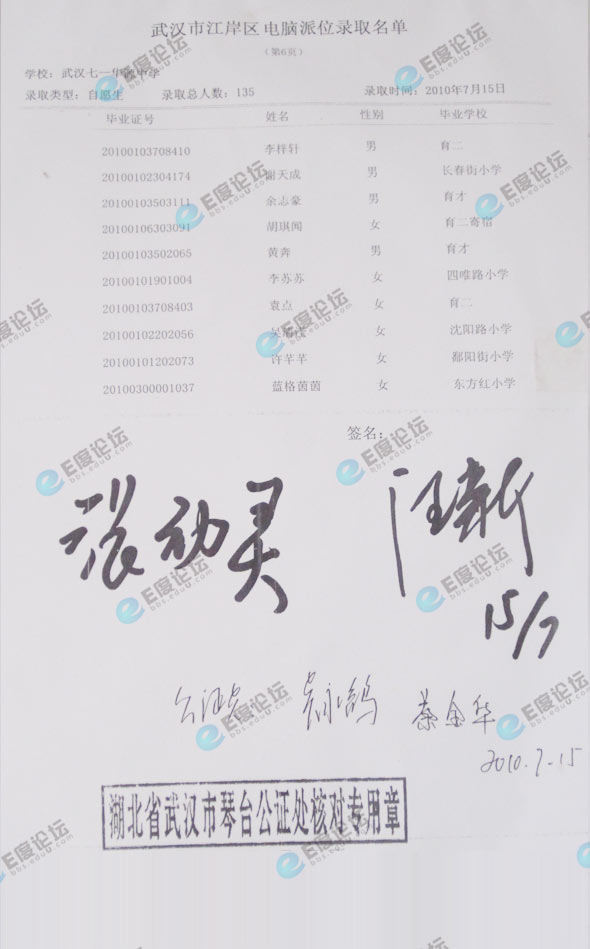 武汉市江岸区电脑派位录取名单
(第6页)
学校: 武汉七一华源中学
录取类型: 自愿生 录取总人数: 135 录取时间: 2010年7月15日
毕业证号 姓名 性别 毕业学校
20100103708410 李梓轩 男 育二
20100102304174 谢天成 男 长春街小学
20100103503111 余志豪 男 育才
20100106303091 胡琪闻 女 育二寄宿
20100103502065 黄奔 男 育才
20100101901004 李苏苏 女 四唯路小学
20100103708403 袁点 女 育二
20100102202056 女 沈阳路小学
20100101202073 许芊芊 女 鄱阳街小学
20100300001037 蓝格茵茵 女 东方红小学
签名:
15/7
公证员 蔡金华
2010.7-15
湖北省武汉市琴台公证处核对专用章
E度论坛
bbs.eduu.com